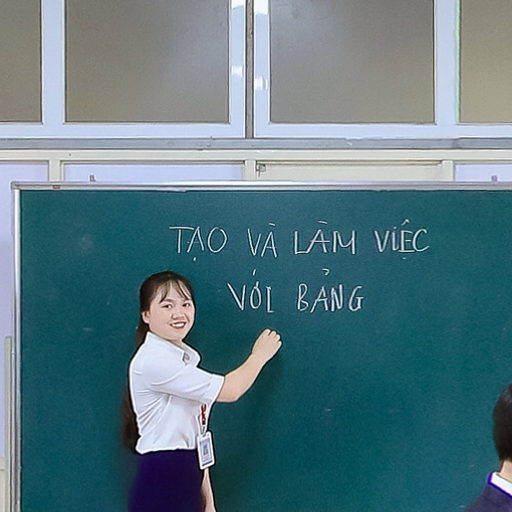 TẠO VÀ LÀM VIỆC
VỚI BẢNG